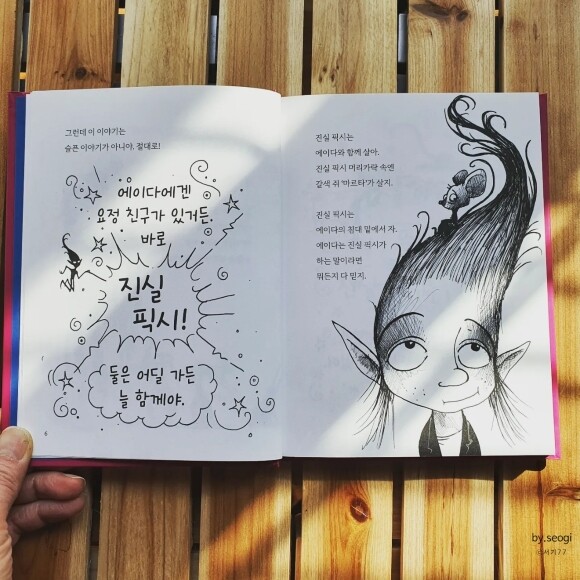 그런데 이 이야기는
슬픈 이야기가 아니야, 절대로!
에이다에겐
요정 친구가 있거든.
바로
진실
픽시!
둘은 어딜 가든
늘 함께야.
6
진실 픽시는
에이다와 함께 살아.
진실 픽시 머리카락 속엔
갈색 쥐 '마르타'가 살지.
진실 픽시는
에이다의 침대 밑에서 자.
에이다는 진실 픽시가
하는 말이라면
뭐든지 다 믿지.
by.seogi